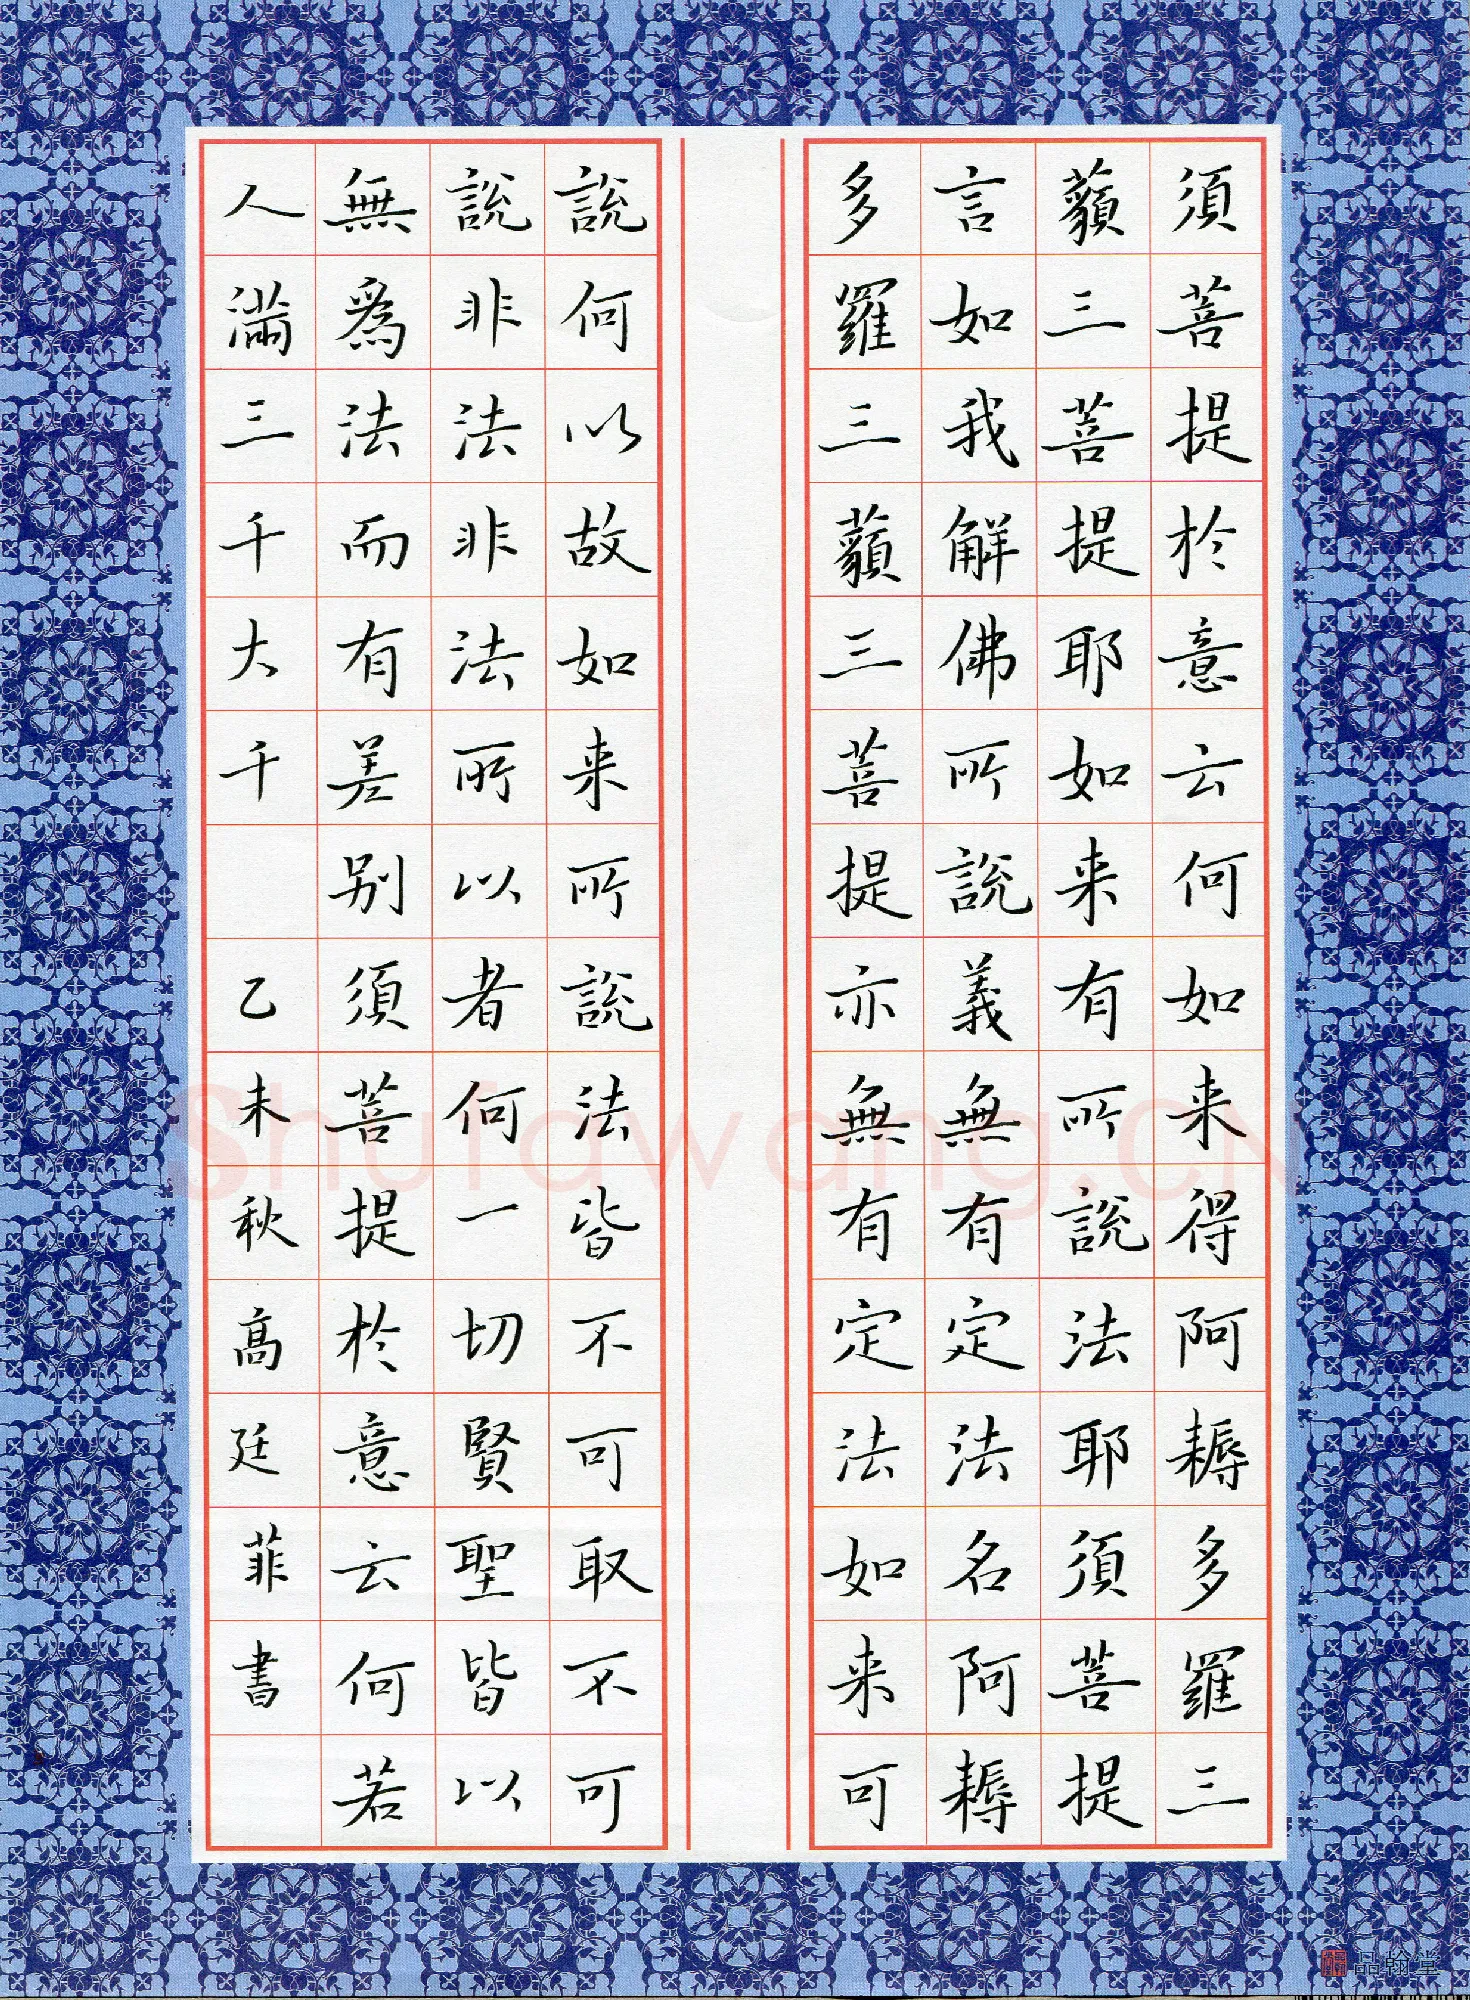 須菩提於意云何如来得阿耨多羅三
藐三菩提耶如来有所說法耶須菩提
言如我解佛所說義無有定法名阿耨
多羅三藐三菩提亦無有定法如来可
說何以故如来所說法皆不可取不可
說非法非法所以者何一切賢聖皆以
無為法而有差别須菩提於意云何若
人滿三千大千 乙未秋高廷菲書
Shufawang.CN
品翰堂